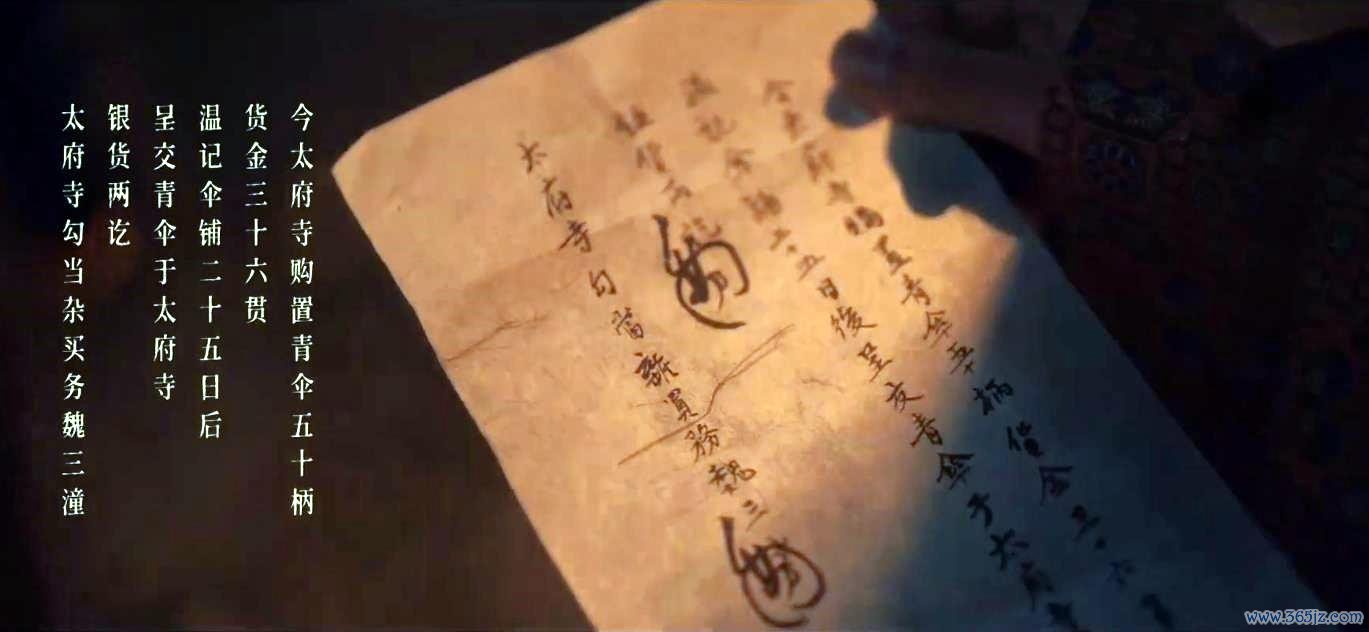 今太府寺购置青伞五十柄
货金三十六贯
温记伞铺二十五日后
呈交青伞于太府寺
银货两讫
太府寺勾当杂买务魏三潼
今太府寺購置青傘五十柄貨金三十六貫
温記傘鋪二十五日後呈交青傘于太府寺
銀貨兩訖
太府寺勾當雜買務魏三
www.365jz.com